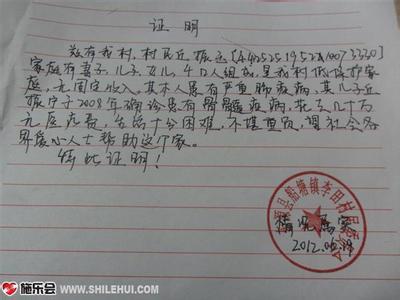 证明
兹有我村,村民丘振运(
家庭有妻子、儿子、女儿,4口人组成,是我村低保护家
庭,无固定收入,其本人患有严重肺疾病,其儿子丘
振宁于2008年确诊患有骨髓疾病,花了几十万
元医疗费,生活十分困难,不堪重负,望社会各
界爱心人士帮助这个家。
特此证明!
船塘镇李田村民委员会
情况属实
2012.06.
施乐会
WWW.SHILEHUI.COM